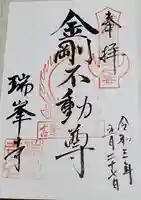 奉拝
令和三年
五月二十七日
金剛不動尊
瑞峯寺